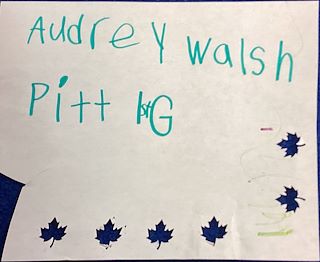 Audrey Walsh
Pitt 1stG